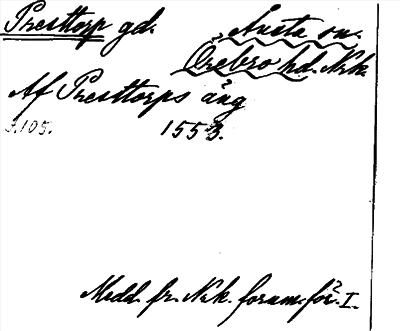 Presttorp gd. Ånsta sn.
Örebro hd. Nrk.
Af Presttorps äng
s. 105. 1553.
Medd. fr. Nrk. fornm.för. I.